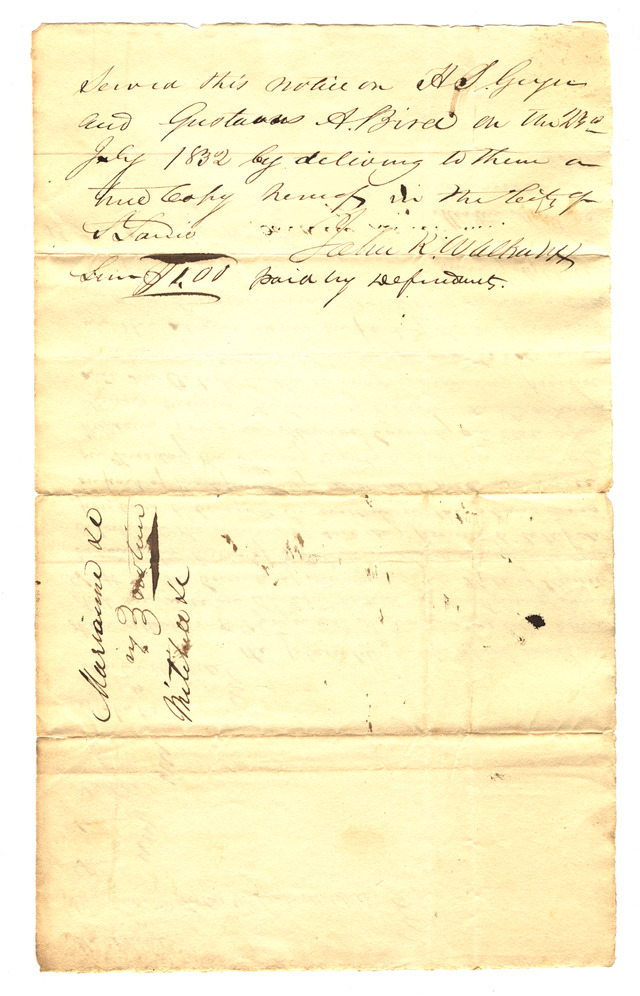 Served this notice on H S. Geyer
and Gustavus A. Bird on the 23rd
July 1832 by delivering to them a
true Copy hereof in the City of
St Louis
John K. Walker
$1.00 paid by Defendants.
Marianne &c
vs
Mitchel &c